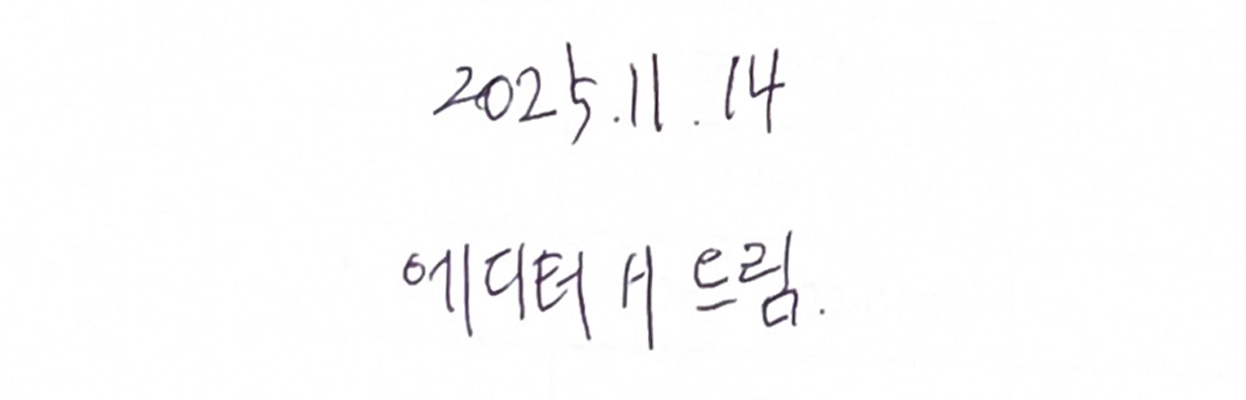 2025.11.14
에디터 H 드림.